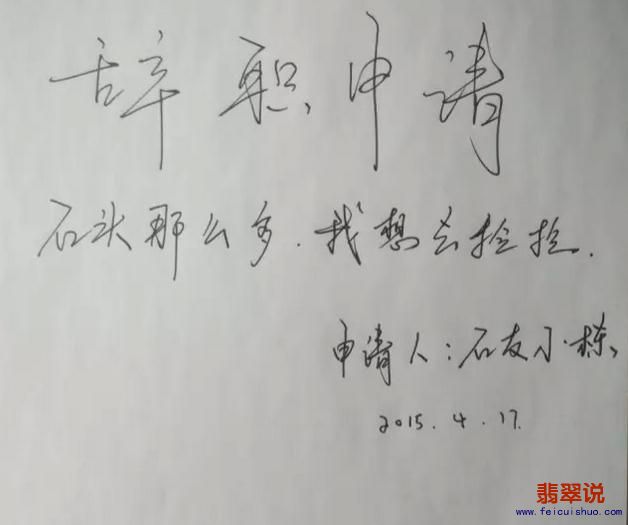 辞职申请
石头那么多.我想去捡捡.
申请人:石友小栋
2015.4.17.
翡翠说
www.feicuishuo.com